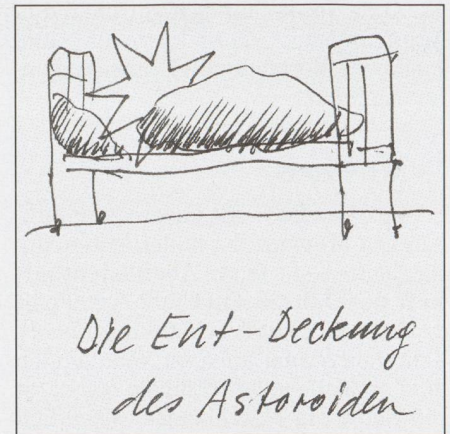 Die Ent-Deckung
des Astoroiden